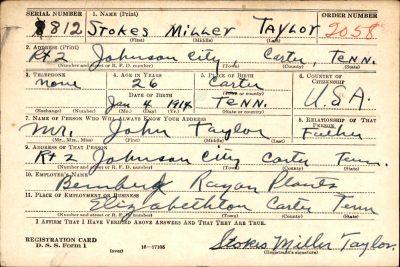 SERIAL NUMBER 1. NAME (Print) ORDER NUMBER
812 Stokes Miller Taylor 2058
(First) (Middle) (Last)
2. ADDRESS (Print)
Rt 2 Johnson City Carter, Tenn.
(Number and street or R. F. D. number) (Town) (County) (State)
3. TELEPHONE 4. AGE IN YEARS 5. PLACE OF BIRTH 6. COUNTRY OF CITIZENSHIP
None 26 Carter U.S.A.
DATE OF BIRTH (Town or county)
Jan 4 1914 Tenn.
(Exchange) (Number) (Mo.) (Day) (Yr.) (State or country)
7. NAME OF PERSON WHO WILL ALWAYS KNOW YOUR ADDRESS 8. RELATIONSHIP OF THAT PERSON
Mr. John Taylor Father
(Mr., Mrs., Miss) (First) (Middle) (Last)
9. ADDRESS OF THAT PERSON
Rt 2 Johnson City Carter Tenn.
(Number and street or R. F. D. number) (Town) (County) (State)
10. EMPLOYER'S NAME
Bemberg Rayon Plants
11. PLACE OF EMPLOYMENT OR BUSINESS
Elizabethton Carter Tenn
(Number and street or R. F. D. number) (Town) (County) (State)
I AFFIRM THAT I HAVE VERIFIED ABOVE ANSWERS AND THAT THEY ARE TRUE.
REGISTRATION CARD
D. S. S. Form 1 (over) 16—17105 Stokes Miller Taylor.
(Registrant's signature)